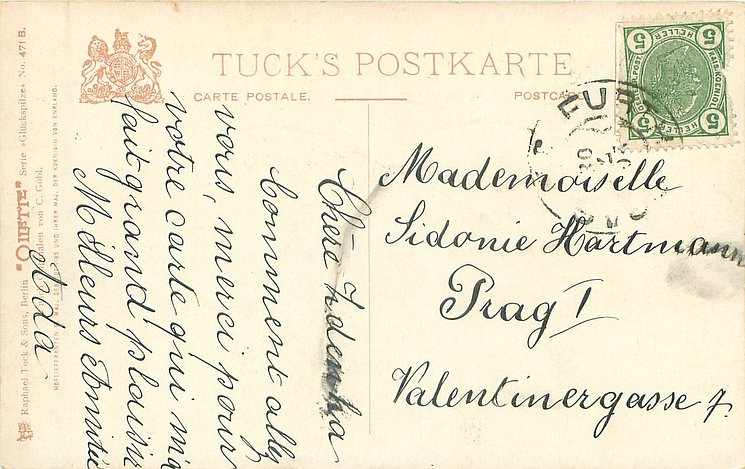 TUCK'S POSTKARTE
CARTE POSTALE.
POSTCA
5 HELLER 5
5 HELLER 5
Mademoiselle
Sidonie Hartmann
Prag I
Valentinergasse 7.
Chère Zdenka
Comment allez
vous, merci pour
votre carte qui m'a
fait grand plaisir
Meilleurs Amitiés
Ada.
Raphael Tuck & Sons, Berlin "OILETTE" Serie »Glückspilze« No. 471 B.
malen von C. Göbl.
HOFLIEFERANTEN MAJ. DES UND IHRER MAJ. DER KOENIGIN VON ENGLAND.